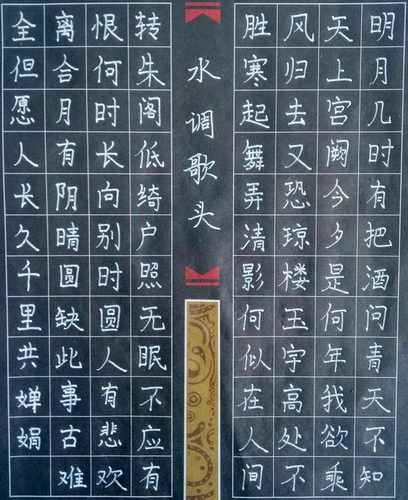 明月几时有把酒问青天不知
天上宫阙今夕是何年我欲乘
风归去又恐琼楼玉宇高处不
胜寒起舞弄清影何似在人间
水调歌头
转朱阁低绮户照无眠不应有
恨何时长向别时圆人有悲欢
离合月有阴晴圆缺此事古难
全但愿人长久千里共婵娟